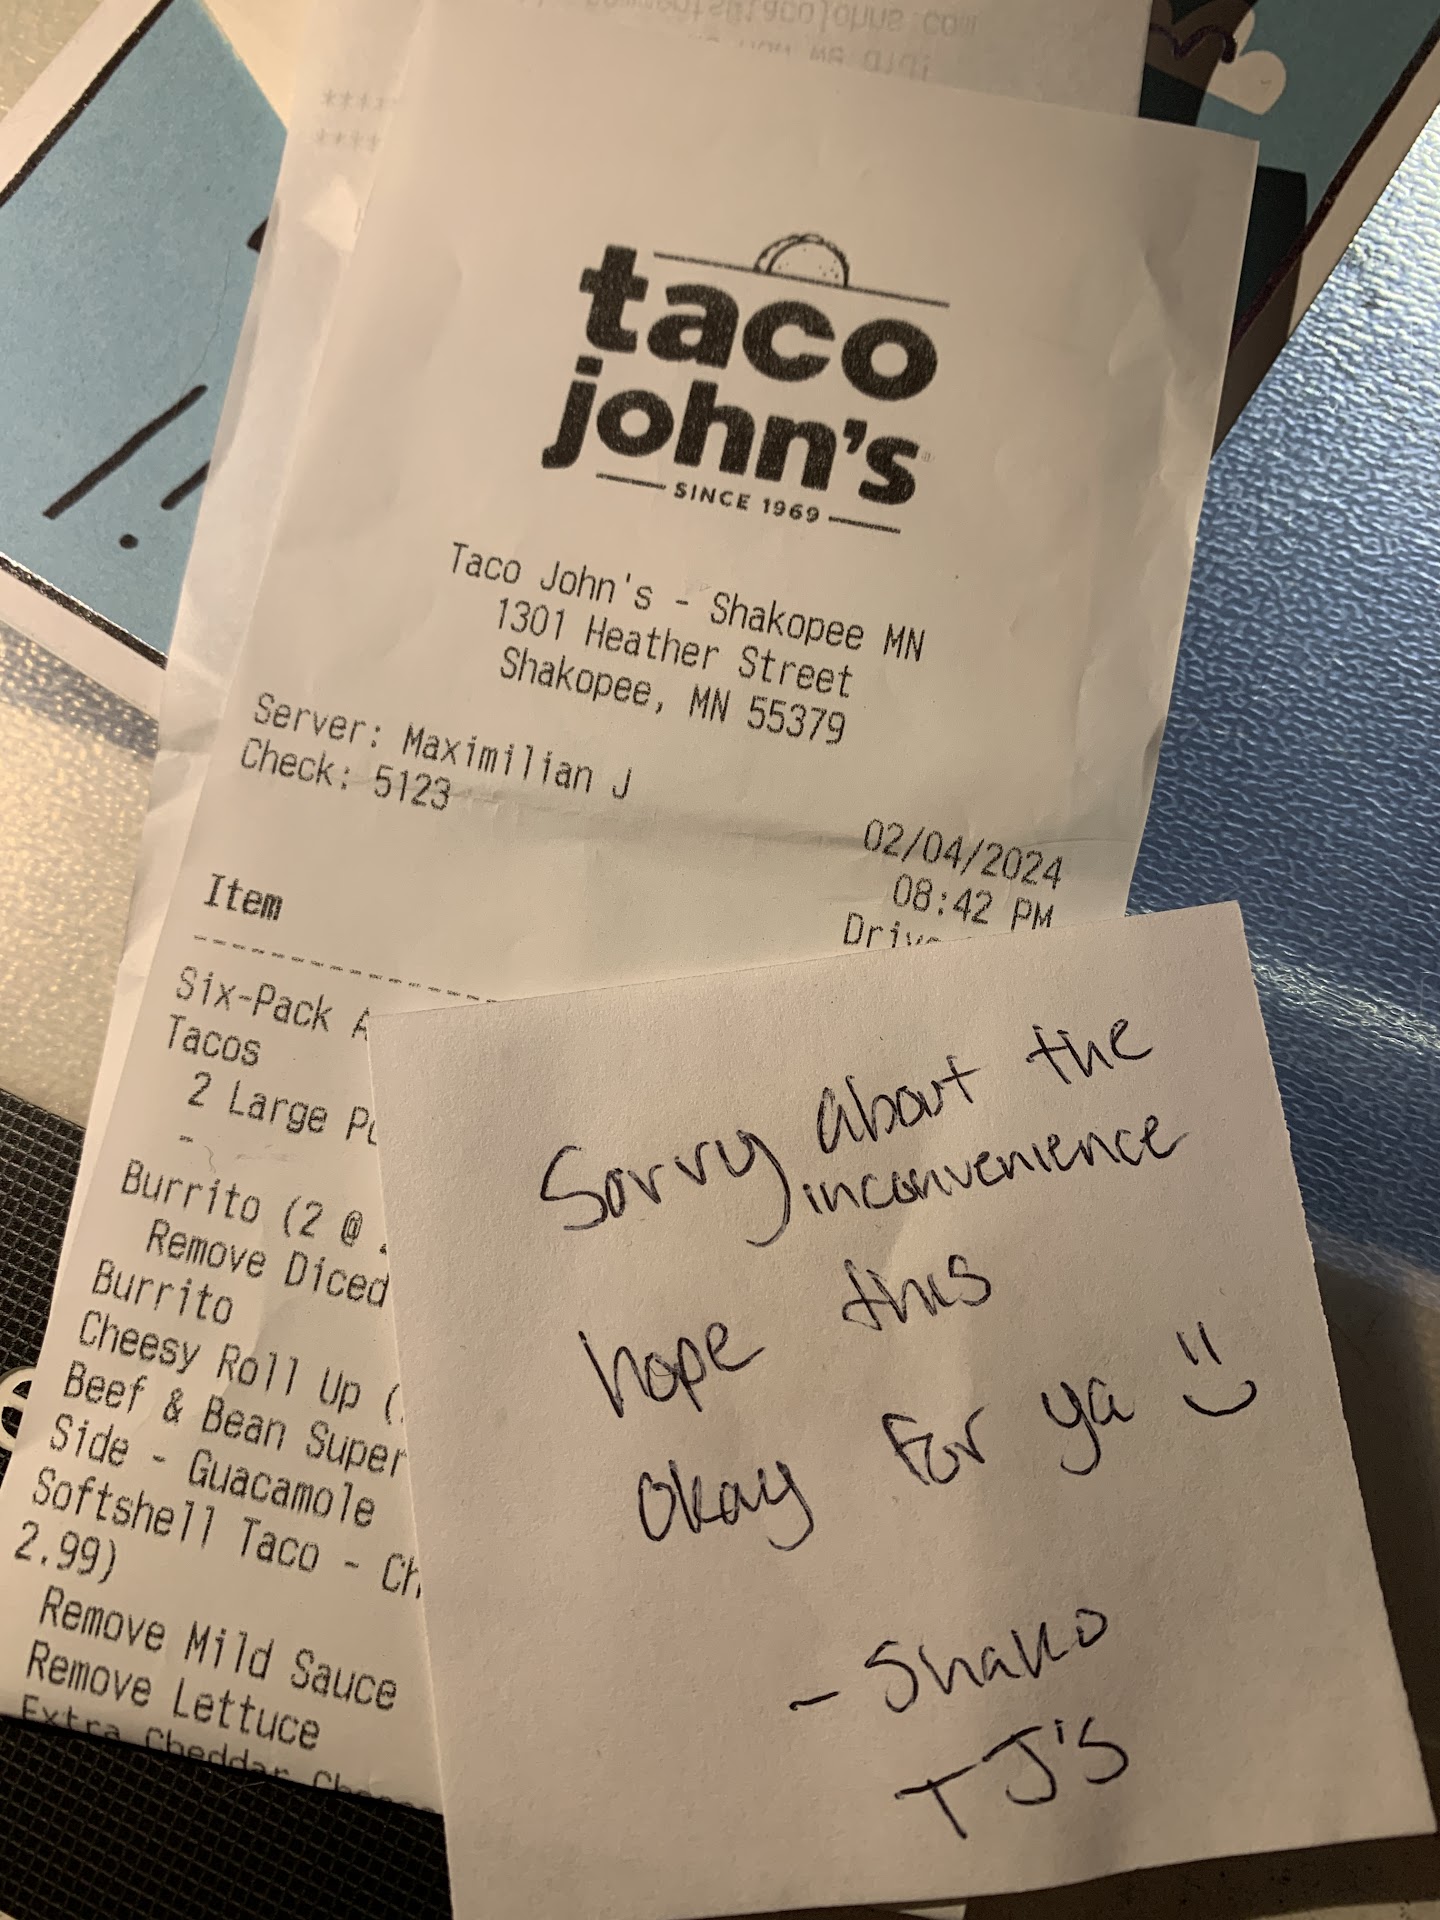 taco
john's
SINCE 1969
Taco John's - Shakopee MN
1301 Heather Street
Shakopee, MN 55379
Server: Maximilian J
Check: 5123
02/04/2024
08:42 PM
Item
Six-Pack
Tacos
2 Large
-
Burrito (2 @
Remove Diced
Burrito
Cheesy Roll Up (
Beef & Bean Super
Side - Guacamole
Softshell Taco -
2.99)
Remove Mild Sauce
Remove Lettuce
Extra Cheddar
Sorry about the
inconvenience
hope this
okay for ya
- Shako
TJ's